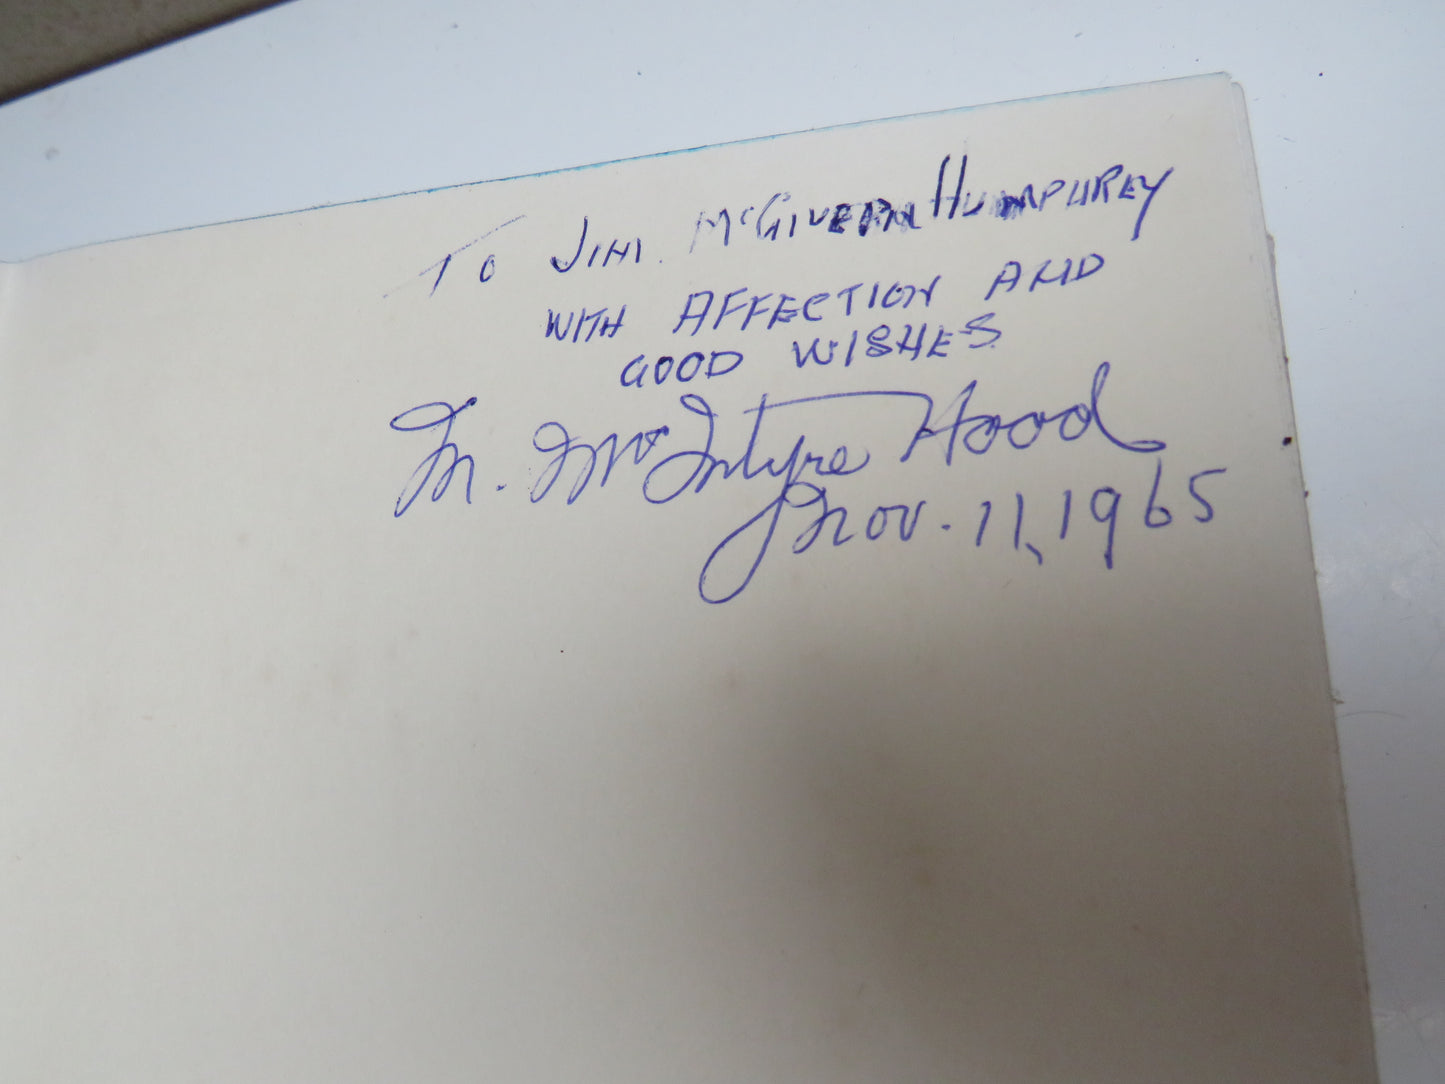 TO JIM. McGIVERN HUMPHREY
WITH AFFECTION AND
GOOD WISHES
M. McIntyre Hood
Nov. 11, 1965